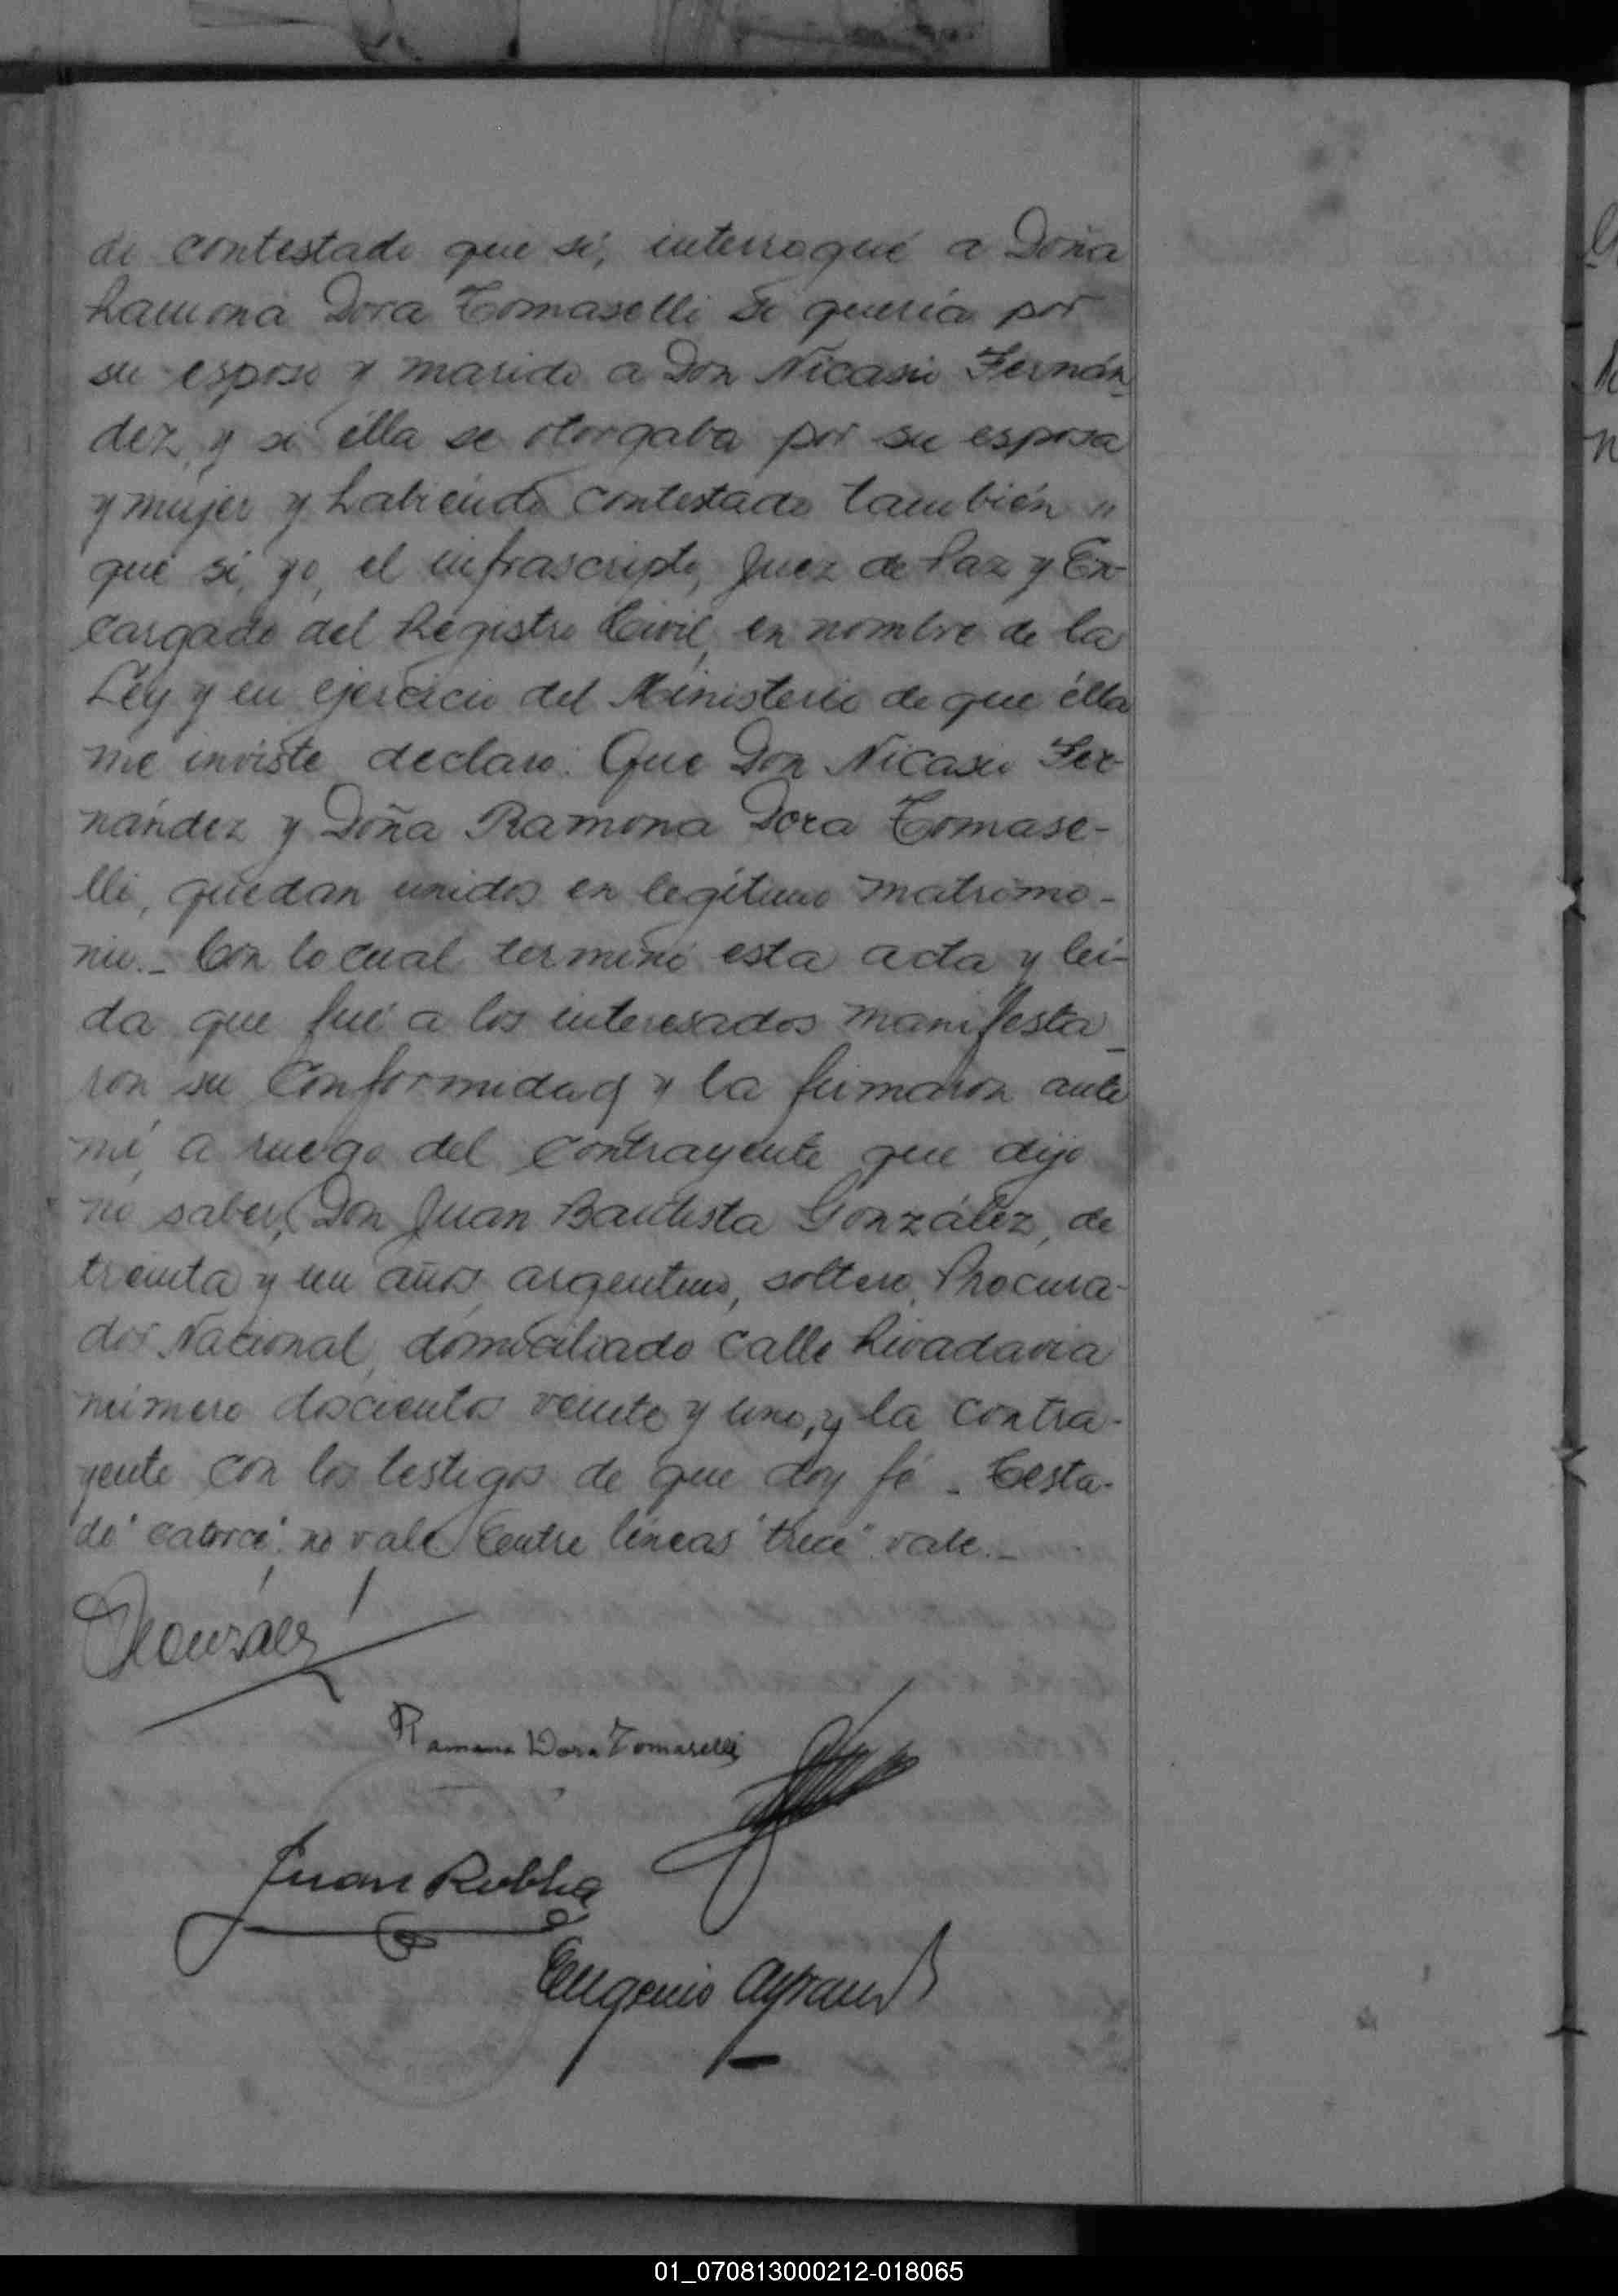 do contestado que sí, interrogué a Doña
Ramona Dora Tomaselli si quería por
su esposo y marido a Don Nicasio Fernán-
dez, y si élla se otorgaba por su esposa
y mujer y habiendo contestado también "
que sí, yo, el infrascripto, Juez de Paz y En-
cargado del Registro Civil, en nombre de la
Ley y en ejercicio del Ministerio de que élla
me inviste declaro: Que Don Nicasio Fer-
nández y Doña Ramona Dora Tomase-
lli, quedan unidos en legítimo matrimo-
nio._ Con lo cual terminó esta acta y leí-
da que fué a los interesados manifesta_
ron su conformidad y la firmaron ante
mí, a ruego del contrayente que dijo
no saber, Don Juan Bautista González, de
treinta y un años, argentino, soltero, Procura-
dor Nacional, domiciliado calle Rivadavia
número doscientos veinte y uno, y la contra-
yente con los testigos de que doy fé._ Testa-
do "catorce" no vale Entre líneas "trece" vale._
González
Ramona Dora Tomaselli
Juan
Eugenio
01_070813000212-018065